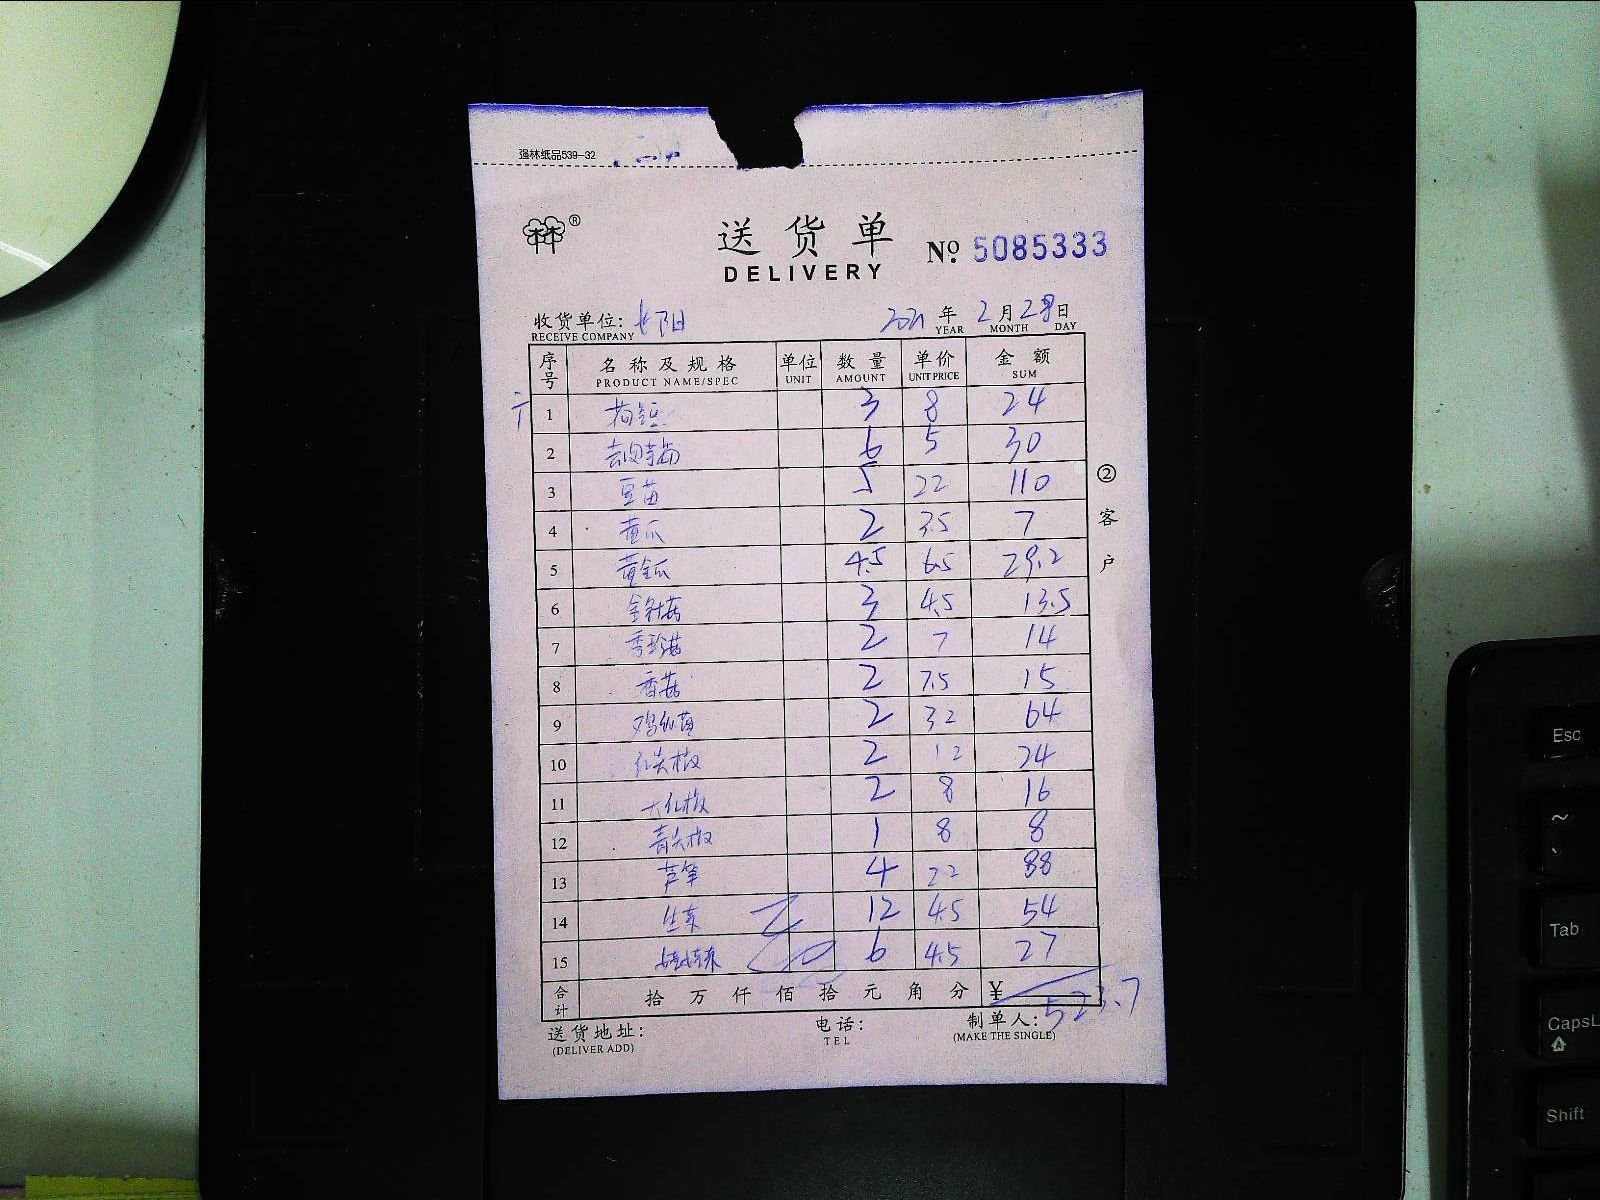 强林纸品539-32
林林®
送货单
DELIVERY
№ 5085333
收货单位: 长阳 2021年2月28日
RECEIVE COMPANY YEAR MONTH DAY
序号 名称及规格 单位 数量 单价 金额
PRODUCT NAME/SPEC UNIT AMOUNT UNIT PRICE SUM
1 3 8 24
2 6 5 30
3 豆苗 5 22 110
4 黄瓜 2 3.5 7
5 黄金瓜 4.5 6.5 29.2
6 金针菇 3 4.5 13.5
7 秀珍菇 2 7 14
8 香菇 2 7.5 15
9 2 32 64
10 红尖椒 2 12 24
11 大红椒 2 8 16
12 青尖椒 1 8 8
13 芦笋 4 22 88
14 生菜 12 4.5 54
15 娃娃菜 6 4.5 27
合计 拾万仟佰拾元角分 ¥ 523.7
②客户
送货地址: 电话: 制单人:
(DELIVER ADD) TEL (MAKE THE SINGLE)
Esc
~
Tab
CapsL
Shift